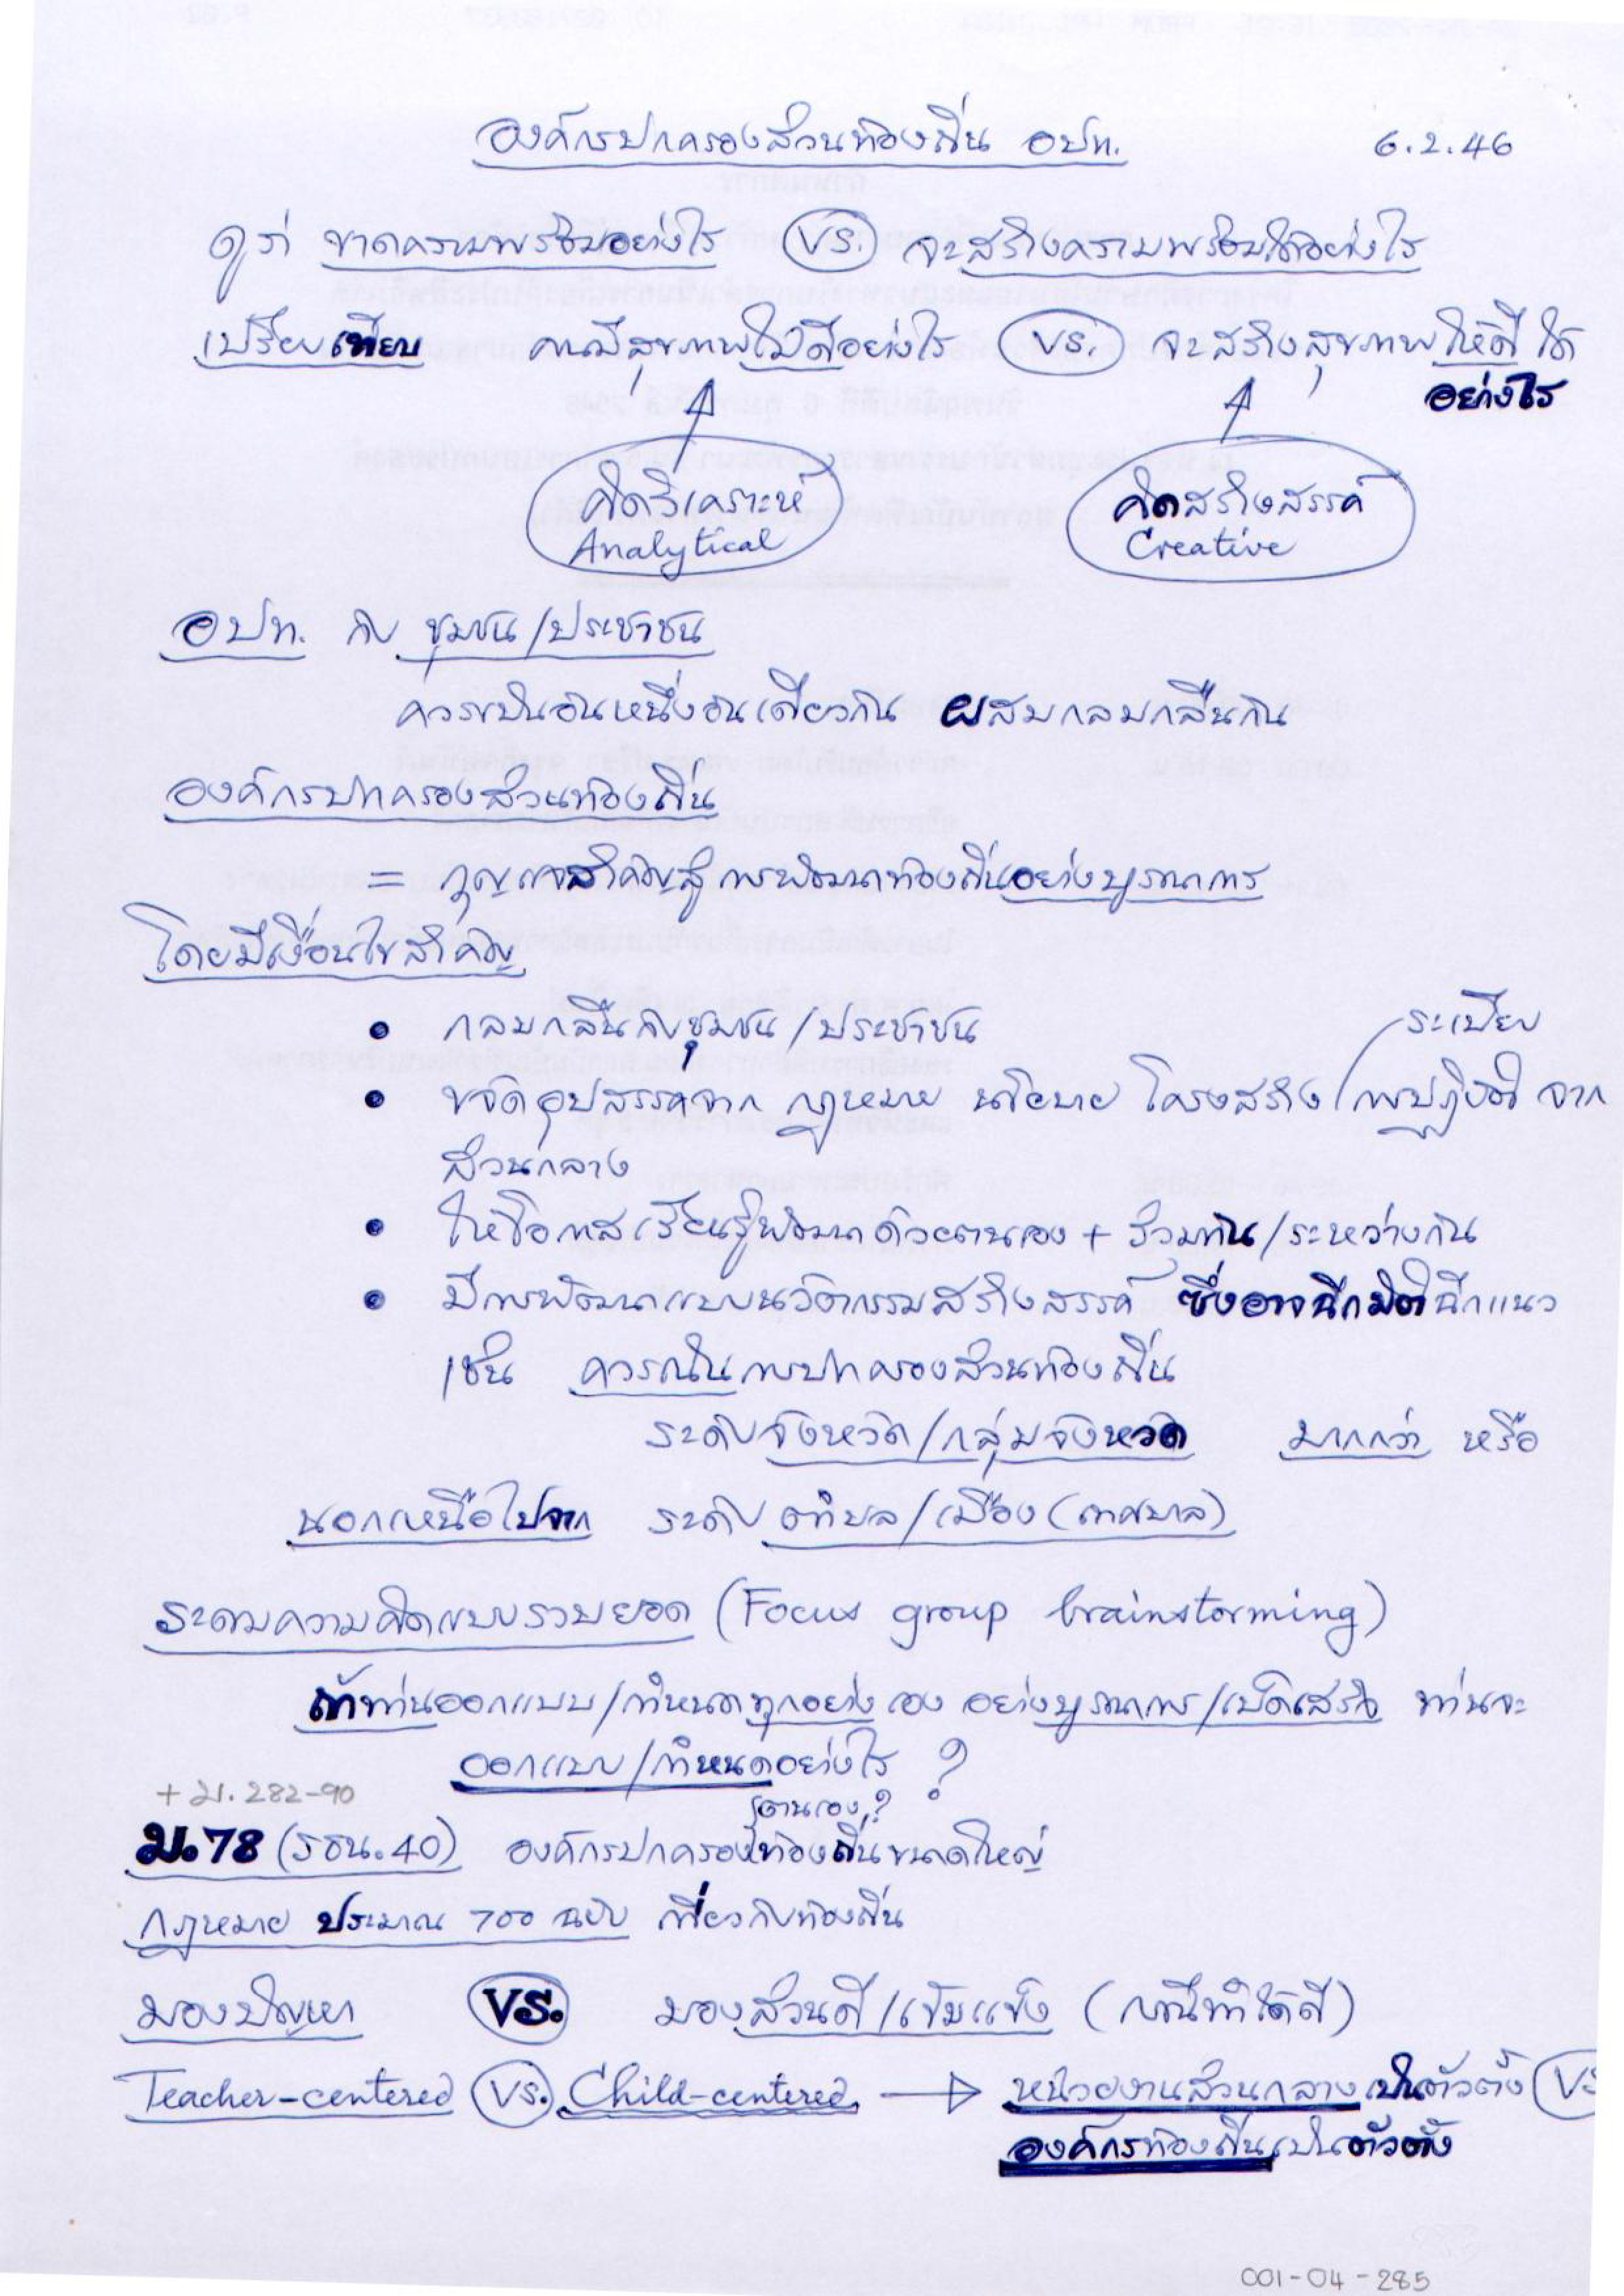 องค์กรปกครองส่วนท้องถิ่น อปท. 6.2.46
ดูว่า ขาดความพร้อมอย่างไร VS. จะสร้างความพร้อมได้อย่างไร
เปรียบเทียบ คนมีสุขภาพไม่ดีอย่างไร VS. จะสร้างสุขภาพให้ดีได้
อย่างไร
คิดวิเคราะห์ คิดสร้างสรรค์
Analytical Creative
อปท. กับ ชุมชน/ประชาชน
ควรเป็นอันหนึ่งอันเดียวกัน ผสมกลมกลืนกัน
องค์กรปกครองส่วนท้องถิ่น
= กุญแจสำคัญสู่การพัฒนาท้องถิ่นอย่างบูรณาการ
โดยมีเงื่อนไขสำคัญ
• กลมกลืนกับชุมชน/ประชาชน
ระเบียบ
• ขจัดอุปสรรคจาก กฎหมาย นโยบาย โครงสร้าง/การปฏิบัติ จาก
ส่วนกลาง
• ให้โอกาสเรียนรู้พัฒนาด้วยตนเอง + ร่วมกัน/ระหว่างกัน
• มีการพัฒนาแบบนวัตกรรมสร้างสรรค์ ซึ่งอาจฉีกมิติฉีกแนว
เช่น ควรเน้นการปกครองส่วนท้องถิ่น
ระดับจังหวัด/กลุ่มจังหวัด มากกว่า หรือ
นอกเหนือไปจาก ระดับ ตำบล/เมือง (เทศบาล)
ระดมความคิดแบบรวบยอด (Focus group brainstorming)
ถ้าท่านออกแบบ/กำหนดทุกอย่างเอง อย่างบูรณาการ/เบ็ดเสร็จ ท่านจะ
ออกแบบ/กำหนดอย่างไร ?
+ ม. 282-90
ตนเอง?
ม.78 (รธน.40) องค์กรปกครองท้องถิ่นขนาดใหญ่
กฎหมาย ประมาณ 700 ฉบับ เกี่ยวกับท้องถิ่น
มองปัญหา VS. มองส่วนดี/เข้มแข็ง (กรณีทำได้ดี)
Teacher-centered VS. Child-centered → หน่วยงานส่วนกลางเป็นตัวตั้ง VS
องค์กรท้องถิ่นเป็นตัวตั้ง
001-04-285